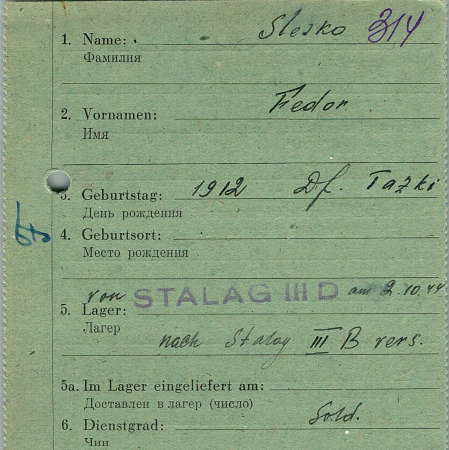 314
1. Name: Slesko
Фамилия
2. Vornamen: Fedor
Имя
3. Geburtstag: 1912 Df. Tazki
День рождения
4. Geburtsort:
Место рождения
von STALAG III D am 2.10.44
5. Lager:
Лагер nach Stalag III B vers.
5a. Im Lager eingeliefert am:
Доставлен в лагер (число)
6. Dienstgrad: Sold.
Чин